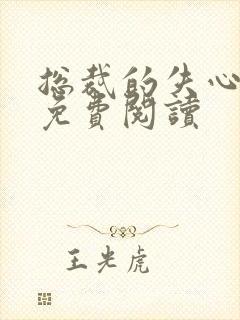 总裁的失心
免費閱讀
王光虎